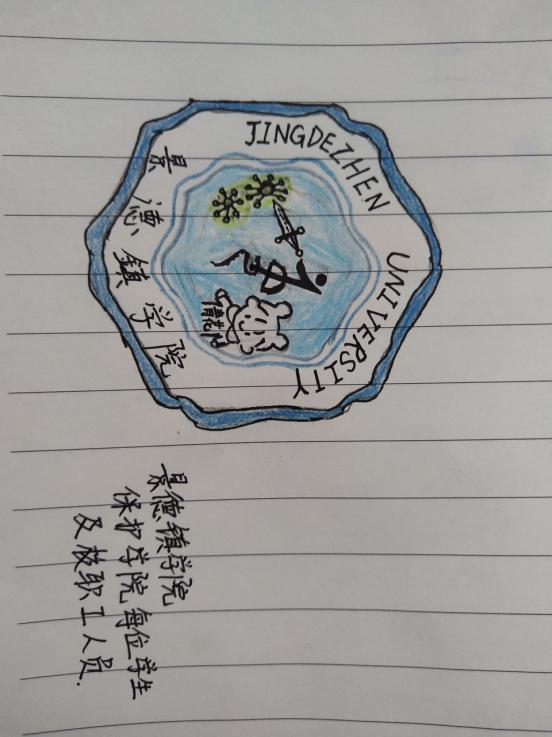 JINGDEZHEN UNIVERSITY
景德镇学院
景德镇学院
保护学院每位学生
及教职工人员.